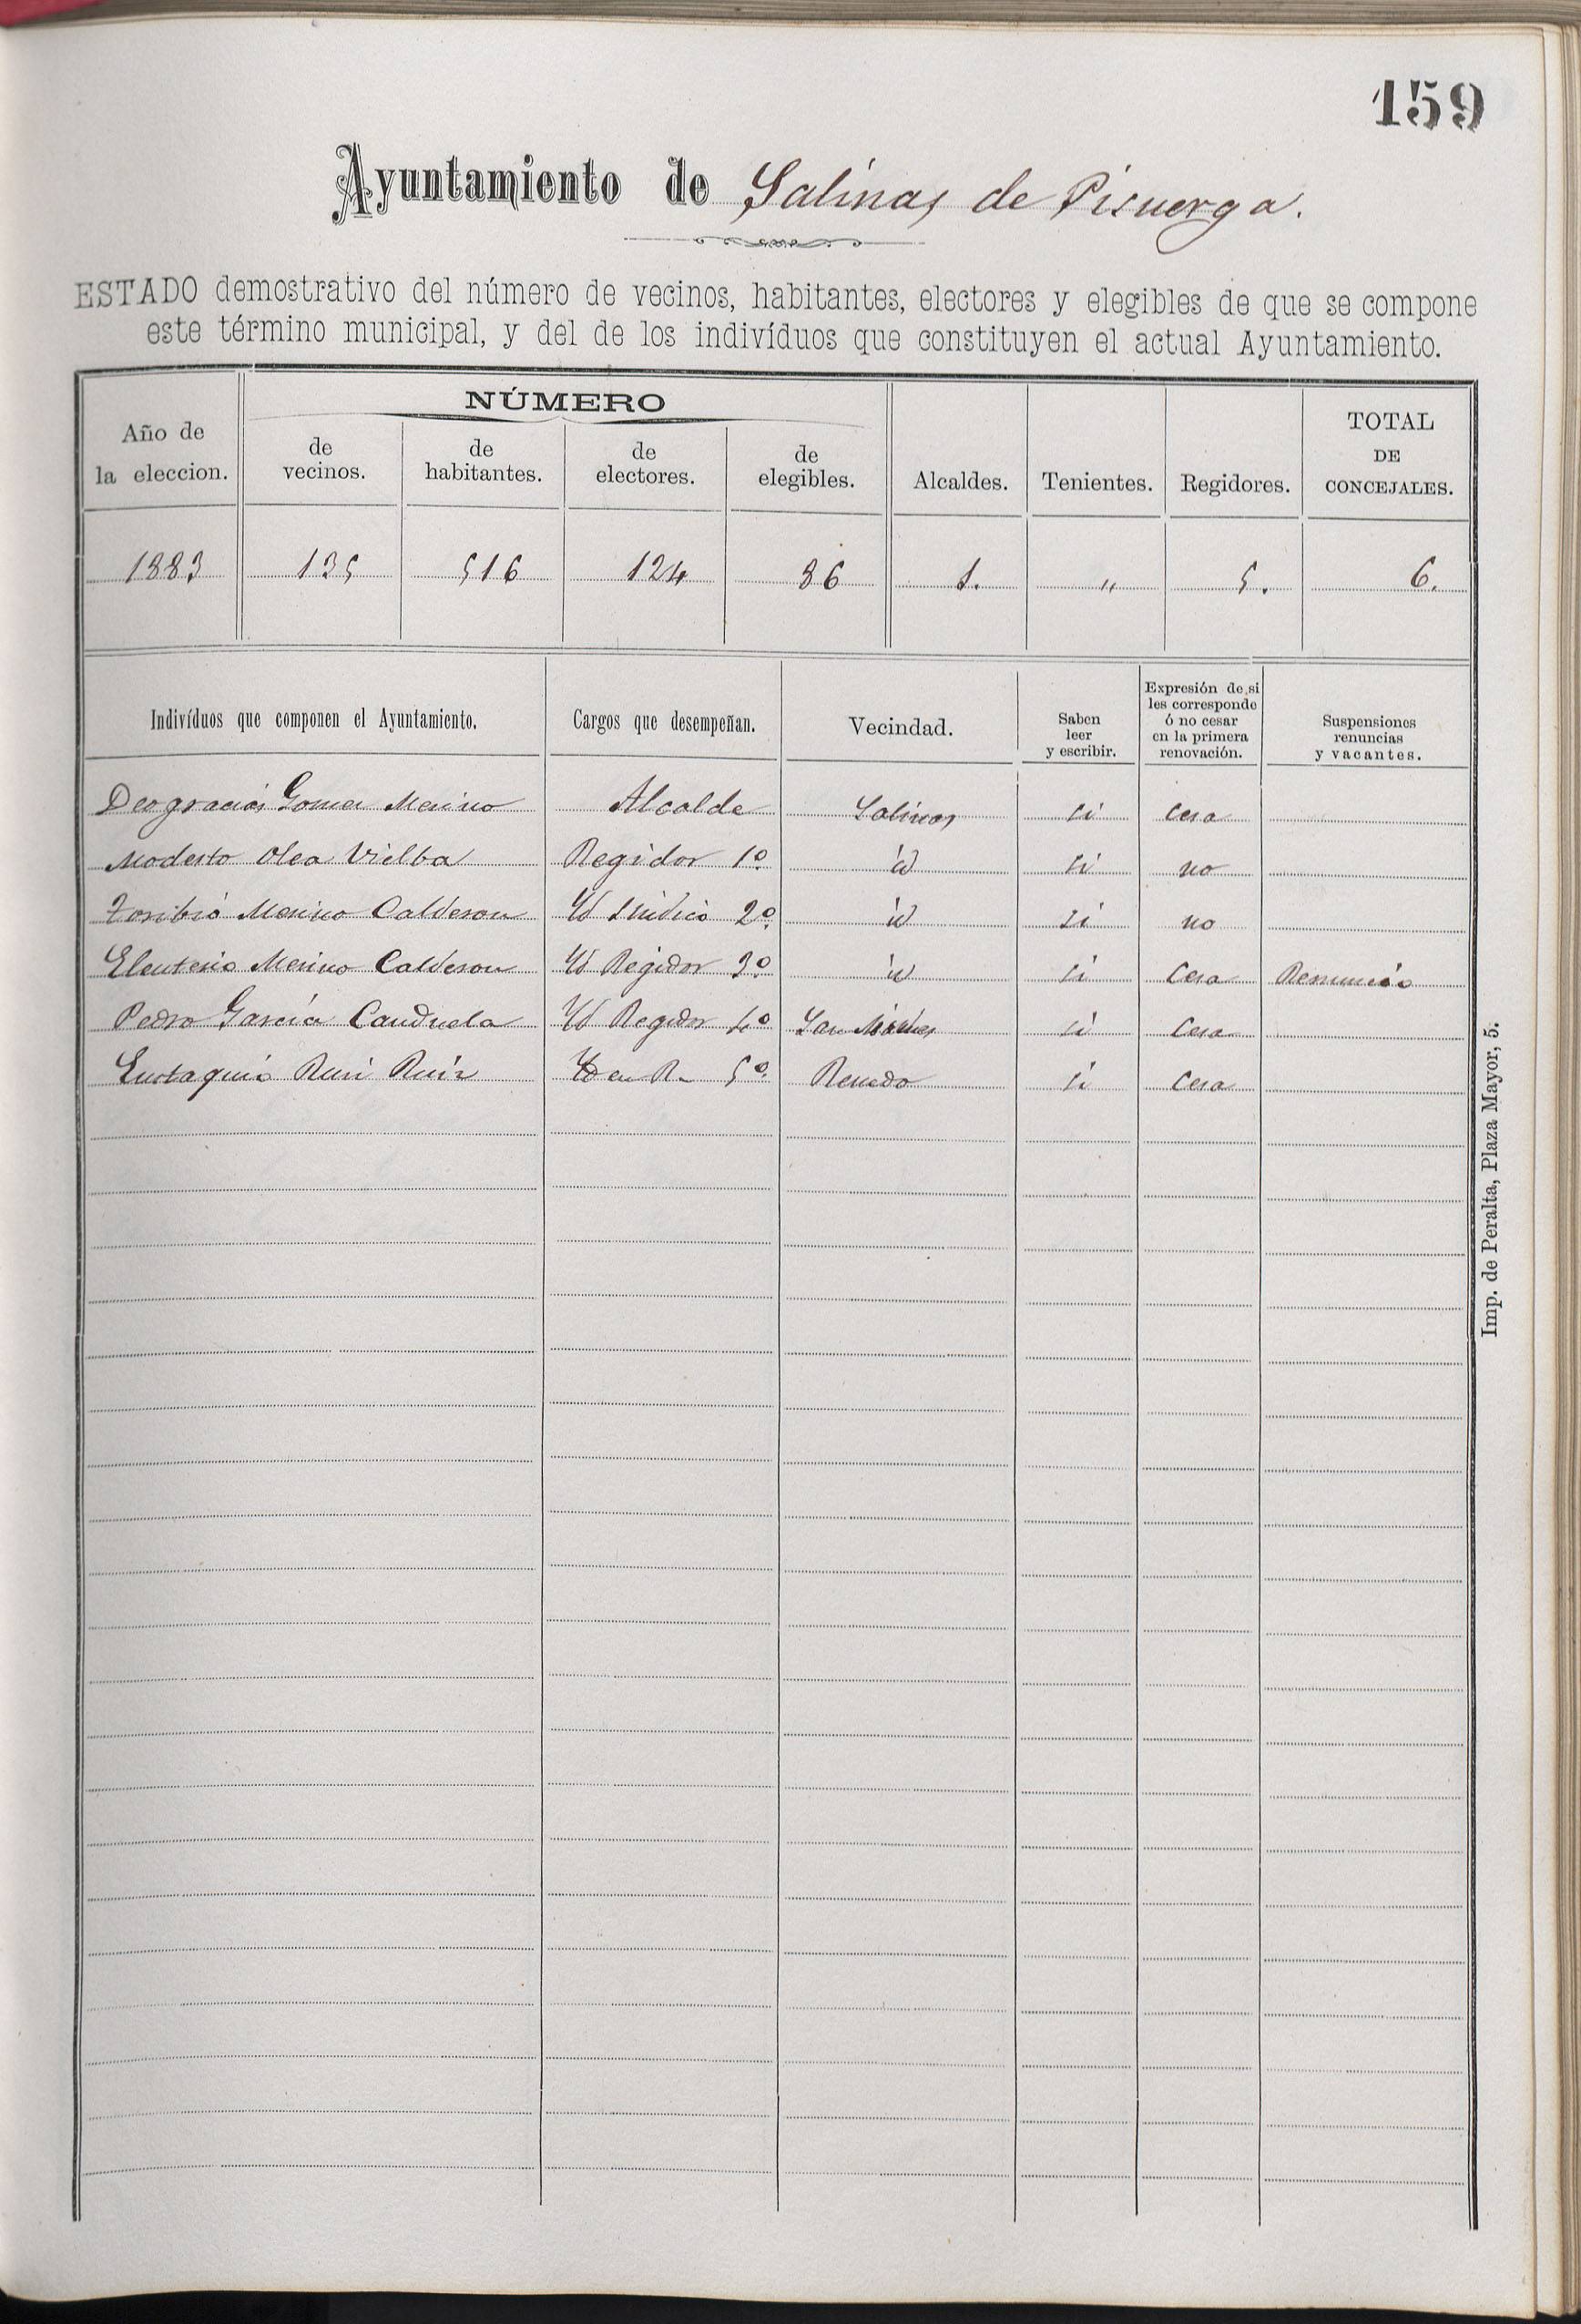 159
Ayuntamiento de Salinas de Pisuerga.
ESTADO demostrativo del número de vecinos, habitantes, electores y elegibles de que se compone
este término municipal, y del de los indivíduos que constituyen el actual Ayuntamiento.
Año de la eleccion. NÚMERO de vecinos. de habitantes. de electores. de elegibles. Alcaldes. Tenientes. Regidores. TOTAL DE CONCEJALES.
1883 135 516 124 86 1. " 5. 6.
Indivíduos que componen el Ayuntamiento. Cargos que desempeñan. Vecindad. Saben leer y escribir. Expresión de si les corresponde ó no cesar en la primera renovación. Suspensiones renuncias y vacantes.
Deogracias Gomez Merino Alcalde Salinas si cesa
Modesto Olea Vielba Regidor 1º id si no
Toribio Merino Calderon Yd Sindico 2º id si no
Eleuterio Merino Calderon Yd Regidor 3º id si Cesa Renunció
Pedro García Canduela Yd Regidor 4º San si Cesa
Eustaquio Ruiz Ruiz 5º Renedo si Cesa
Imp. de Peralta, Plaza Mayor, 5.